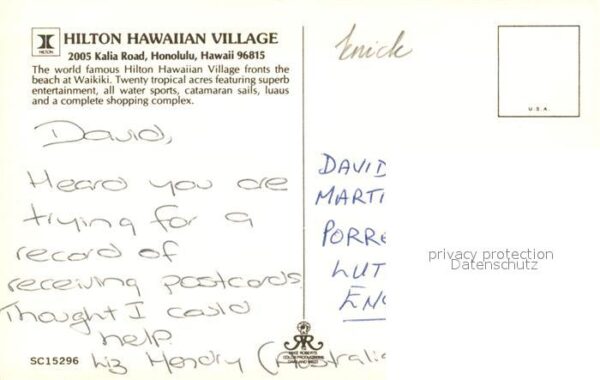 HILTON
HILTON HAWAIIAN VILLAGE
2005 Kalia Road, Honolulu, Hawaii 96815
The world famous Hilton Hawaiian Village fronts the
beach at Waikiki. Twenty tropical acres featuring superb
entertainment, all water sports, catamaran sails, luaus
and a complete shopping complex.
knick
U.S.A.
David,
Heard you are
trying for a
record of
receiving postcards
Thought I could
help.
Liz Hendry (Australia
DAVID
MARTI
PORRE
LUT
ENG
privacy protection
Datenschutz
MIKE ROBERTS
COLOR PRODUCTIONS
SC15296